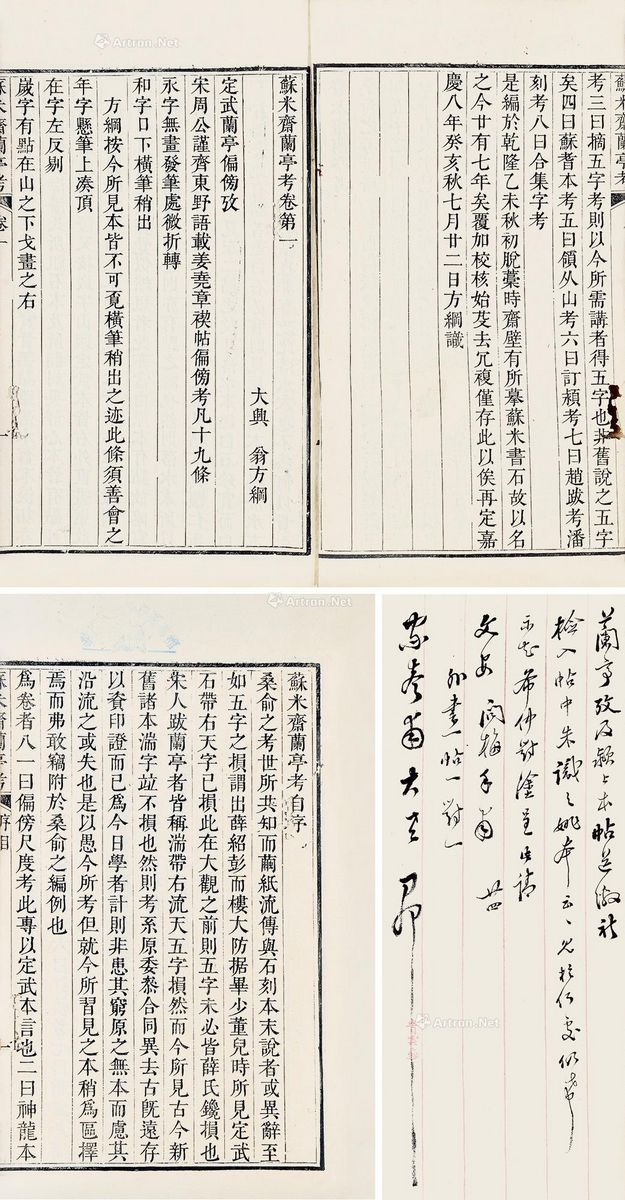 Artron.Net
蘇米齋蘭亭考
考三曰摘五字考則以今所需講者得五字也非舊說之五字
矣四曰蘇耆本考五曰領从山考六曰訂潁考七曰趙跋考潘
刻考八曰合集字考
是編於乾隆乙未秋初脫藳時齋壁有所摹蘇米書石故以名
之今廿有七年矣覆加校核始芟去冗複僅存此以俟再定嘉
慶八年癸亥秋七月廿二日方綱識
蘇米齋蘭亭考卷第一
大興 翁方綱
定武蘭亭偏傍攷
宋周公謹齊東野語載姜堯章禊帖偏傍考凡十九條
永字無畫發筆處微折轉
和字口下橫筆稍出
方綱按今所見本皆不可覔橫筆稍出之迹此條須善會之
年字懸筆上湊頂
在字左反剔
歲字有點在山之下戈畫之右
蘇米齋蘭亭考 卷一 一
Artron.Net
蘇米齋蘭亭考自序
桑俞之考世所共知而繭紙流傳與石刻本末說者或異辭至
如五字之損謂出薛紹彭而樓大防据畢少董兒時所見定武
石帶右天字已損此在大觀之前則五字未必皆薛氏鑱損也
宋人跋蘭亭者皆稱湍帶右流天五字損然而今所見古今新
舊諸本湍字竝不損也然則考系原委叅合同異去古旣遠存
以資印證而已爲今日學者計則非患其窮原之無本而慮其
沿流之或失也是以愚今所考但就今所習見之本稍爲區擇
焉而弗敢竊附於桑俞之編例也
爲卷者八一曰偏傍尺度考此專以定武本言也二曰神龍本
蘇米齋蘭亭考 序目 一
蘭亭攷及潁上本帖送繳祈
檢入帖中朱識之姚本云云見於何處仍希
示知希仲對
文安 閻梅手肅 廿四
外書一帖一對一
大
Artron.Net